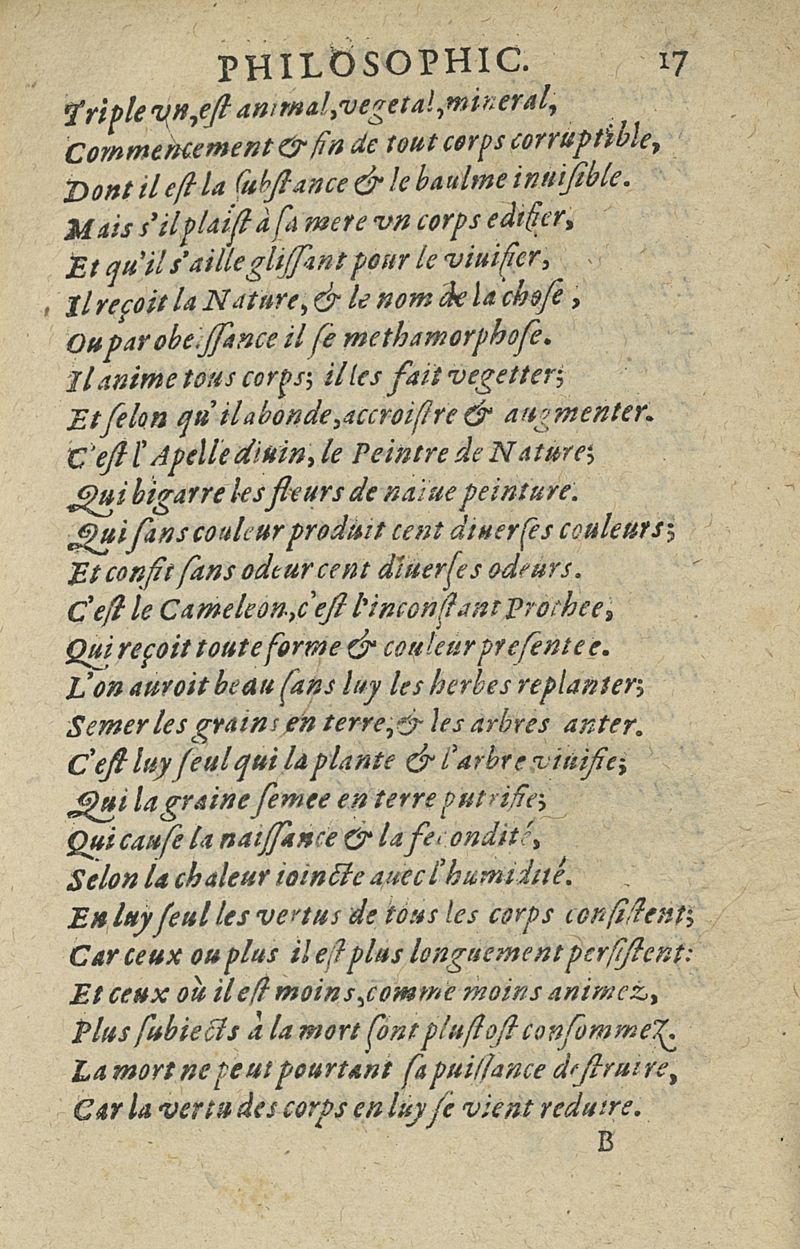 PHILOSOPHIC. 17
Triple vn, eſt animal, vegetal, mineral,
Commencement & fin de tout corps corruptible,
Dont il eſt la ſubſtance & le baulme inuiſible.
Mais s'il plaiſt à ſa mere vn corps edifier,
Et qu'il s'aille gliſſant pour le viuifier,
Il reçoit la Nature, & le nom de la choſe,
Ou par obeiſſance il ſe methamorphoſe.
Il anime tous corps; il les fait vegetter;
Et ſelon qu'il abonde, accroiſtre & augmenter.
C'eſt l'Apelle diuin, le Peintre de Nature;
Qui bigarre les fleurs de naïue peinture.
Qui ſans couleur produit cent diuerſes couleurs;
Et confit ſans odeur cent diuerſes odeurs.
C'eſt le Cameleon, c'eſt l'inconſtant Prothee,
Qui reçoit toute forme & couleur preſentee.
L'on auroit beau ſans luy les herbes replanter;
Semer les grains en terre, & les arbres anter.
C'eſt luy ſeul qui la plante & l'arbre viuifie;
Qui la graine ſemee en terre putrifie;
Qui cauſe la naiſſance & la fecondité,
Selon la chaleur ioincte auec l'humidité.
En luy ſeul les vertus de tous les corps conſiſtent;
Car ceux ou plus il eſt plus longuement perſiſtent:
Et ceux où il eſt moins, comme moins animez,
Plus ſubiects à la mort ſont pluſtoſt conſommez.
La mort ne peut pourtant ſa puiſſance deſtruire,
Car la vertu des corps en luy ſe vient reduire.
B